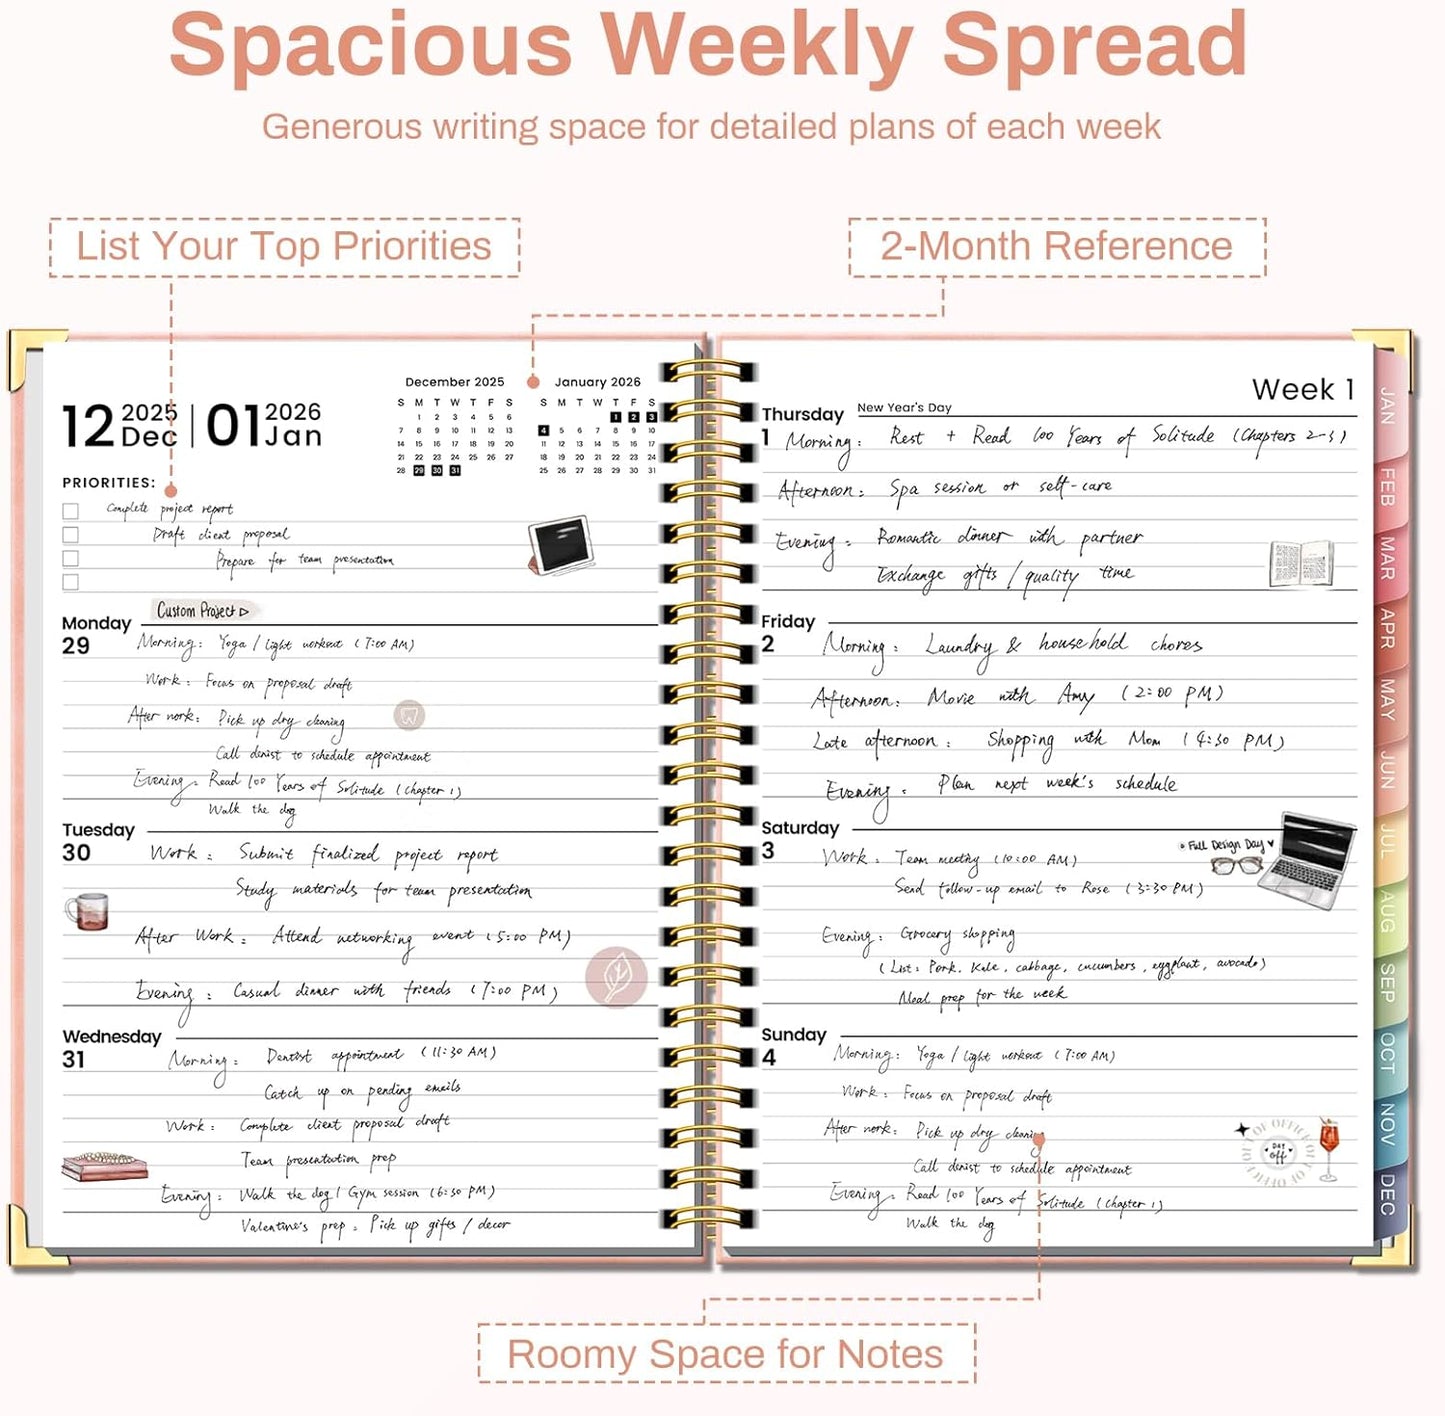 Spacious Weekly Spread
Generous writing space for detailed plans of each week
List Your Top Priorities
2-Month Reference
12 2025 Dec | 01 2026 Jan
December 2025
S M T W T F S
1 2 3 4 5 6
7 8 9 10 11 12 13
14 15 16 17 18 19 20
21 22 23 24 25 26 27
28 29 30 31
January 2026
S M T W T F S
1 2 3
4 5 6 7 8 9 10
11 12 13 14 15 16 17
18 19 20 21 22 23 24
25 26 27 28 29 30 31
PRIORITIES:
Complete project report
Draft client proposal
Prepare for team presentation
Custom Project
Monday
29
Morning: Yoga / light workout (7:00 AM)
Work: Focus on proposal draft
After work: Pick up dry cleaning
Call denist to schedule appointment
Evening: Read 100 Years of Solitude (Chapter 1)
Walk the dog
Tuesday
30
Work: Submit finalized project report
Study materials for team presentation
After Work: Attend networking event (5:00 PM)
Evening: Casual dinner with friends (7:00 PM)
Wednesday
31
Morning: Dentist appointment (11:30 AM)
Catch up on pending emails
Work: Complete client proposal draft
Team presentation prep
Evening: Walk the dog / Gym session (6:30 PM)
Valentine's prep: Pick up gifts / decor
Week 1
Thursday
New Year's Day
1
Morning: Rest + Read 100 Years of Solitude (Chapters 2-3)
Afternoon: Spa session or self-care
Evening: Romantic dinner with partner
Exchange gifts / quality time
Friday
2
Morning: Laundry & household chores
Afternoon: Movie with Amy (2:00 PM)
Late afternoon: Shopping with Mom (4:30 PM)
Evening: Plan next week's schedule
Saturday
3
Full Design Day
Work: Team meeting (10:00 AM)
Send follow-up email to Rose (3:30 PM)
Evening: Grocery shopping
(List: Pork, Kale, cabbage, cucumbers, eggplant, avocado)
Meal prep for the week
Sunday
4
Morning: Yoga / light workout (7:00 AM)
Work: Focus on proposal draft
After work: Pick up dry cleaning
Call denist to schedule appointment
Evening: Read 100 Years of Solitude (Chapter 1)
Walk the dog
DAY off
JAN
FEB
MAR
APR
MAY
JUN
JUL
AUG
SEP
OCT
NOV
DEC
Roomy Space for Notes